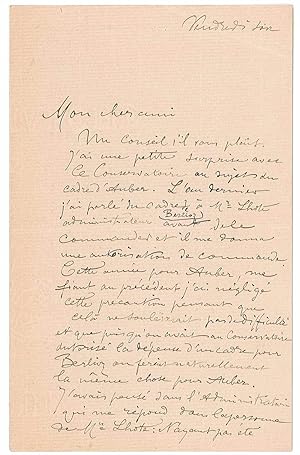 Vendredi soir
Mon cher ami
Un conseil s'il vous plait.
J'ai une petite surprise avec
le Conservatoire au sujet du
cadre d'Auber. L'an dernier
j'ai parlé du cadre à Mr Lhote
Berlioz
administrateur avant de le
commander et il me donna
une autorisation de commande
Cette année pour Auber, me
fiant au précédent j'ai négligé
cette précaution pensant que
celà ne souleverait pas de difficulté
et que puisqu'on avait au Conservatoire
autorisé la dépense d'un cadre pour
Berlioz on ferait naturellement
la même chose pour Auber.
J'avais pensé dans l'Administration
qui me répond dans la personne
de Mr Lhote; N'ayant pas été